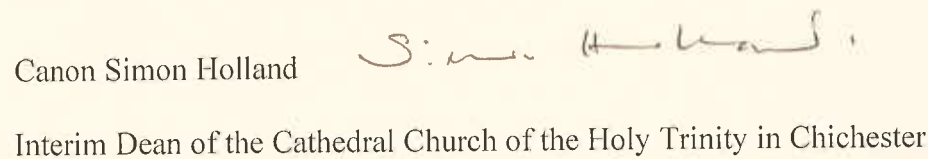 Canon Simon Holland Simon Holland.
Interim Dean of the Cathedral Church of the Holy Trinity in Chichester